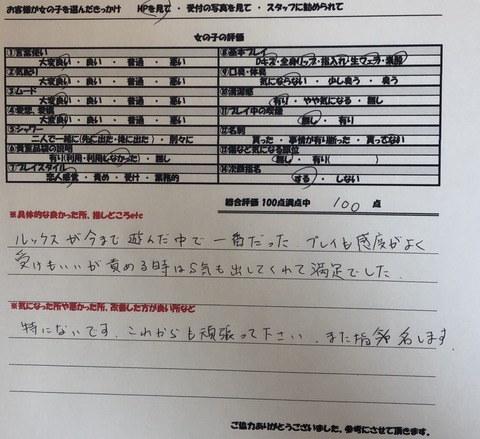 お客様が女の子を選んだきっかけ　HPを見て ・ 受付の写真を見て ・ スタッフに勧められて
女の子の評価
①言葉使い
大変良い ・ 良い ・ 普通 ・ 悪い
②気配り
大変良い ・ 良い ・ 普通 ・ 悪い
③ムード
大変良い ・ 良い ・ 普通 ・ 悪い
④愛想、愛嬌
大変良い ・ 良い ・ 普通 ・ 悪い
⑤シャワー
二人で一緒に(先に出た・後に出た) ・ 別々に
⑥貴重品袋の説明
有り(利用・利用しなかった) ・ 無し
⑦プレイスタイル
恋人感覚 ・ 責め ・ 受け ・ 業務的
⑧基本プレイ
Dキス・全身リップ・指入れ・生フェラ・素股
⑨口臭・体臭
気にならない ・ 少し臭う ・ 臭う
⑩清潔感
有り ・ やや気になる ・ 無し
⑪プレイ中の喫煙
無し ・ 有り
⑫名刺
貰った ・ 事情が有り断った ・ 貰ってない
⑬傷など気になる部位
無し ・ 有り( )
⑭次回指名
する ・ しない
総合評価 100点満点中 100 点
※具体的な良かった所、推しどころetc
ルックスが今まで遊んだ中で一番だった。プレイも感度がよく
受けもいいが責める時はS気も出してくれて満足でした。
※気になった所や悪かった所、改善した方が良い所など
特にないです。これからも頑張って下さい。また指名します。
ご協力ありがとうございました、参考にさせて頂きます。